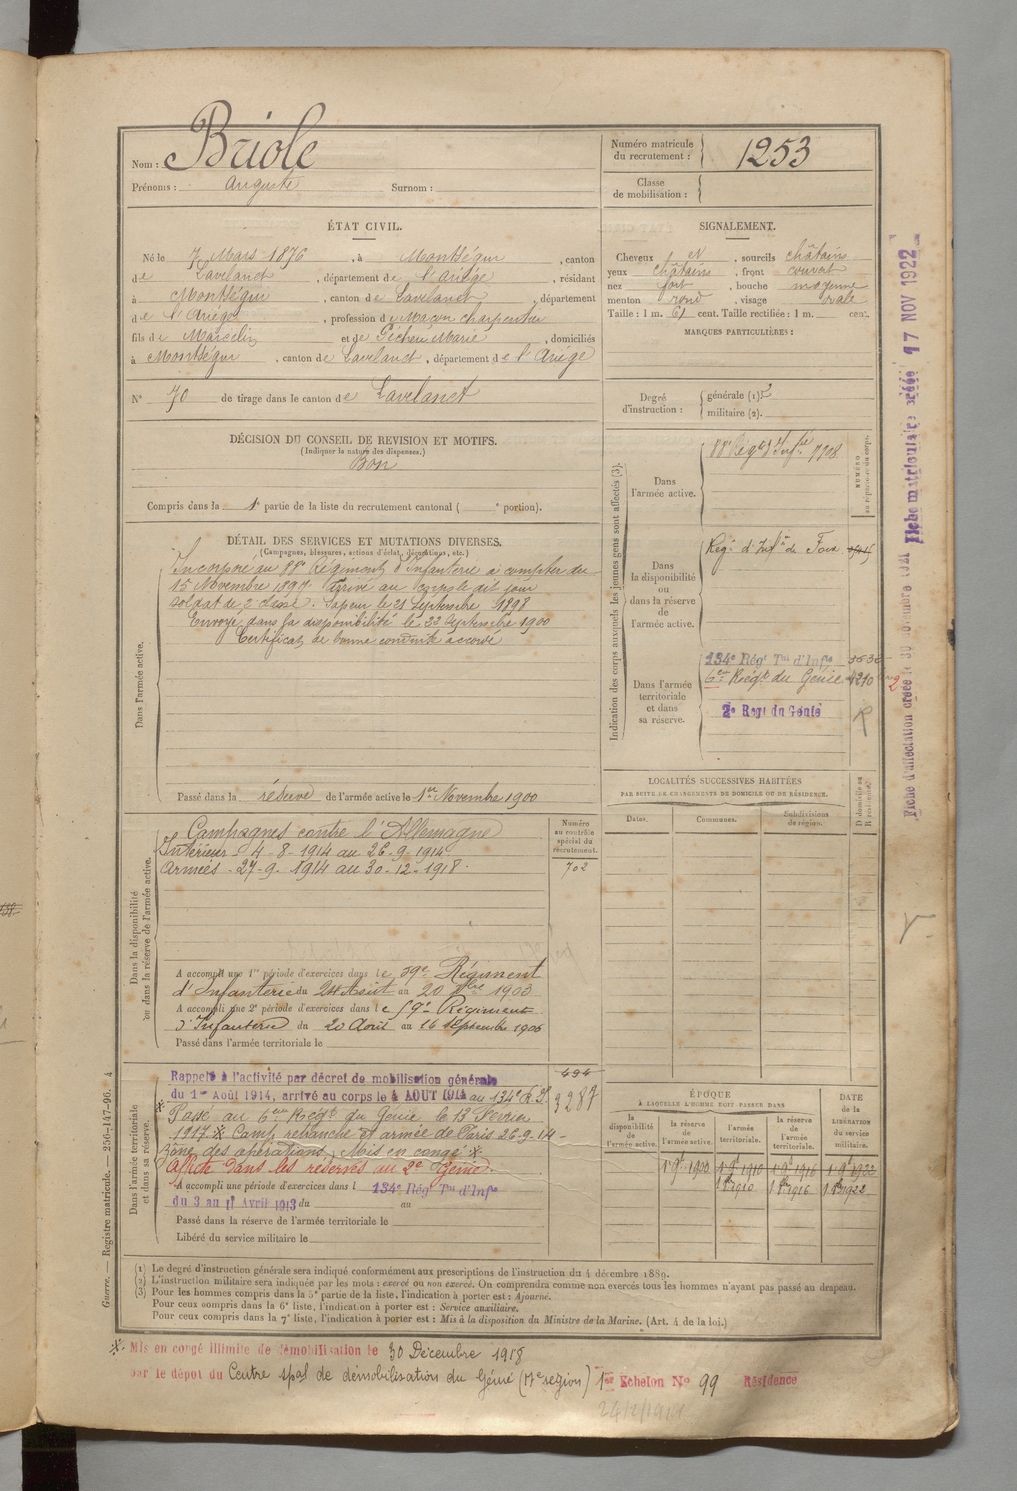 Nom : Briole
Prénoms : Auguste Surnom :
Numéro matricule
du recrutement : 1253
Classe
de mobilisation :
ÉTAT CIVIL.
Né le 7 Mars 1876, à Montségur, canton
de Lavelanet, département de l'Ariège, résidant
à Montségur, canton de Lavelanet, département
de l'Ariège, profession de Maçon charpentier
fils de Marcelin et de Pécheu Marie, domiciliés
à Montségur, canton de Lavelanet, département de l'Ariège
N° 70 de tirage dans le canton de Lavelanet
SIGNALEMENT.
Cheveux et, sourcils châtains
yeux châtains, front couvert
nez fort, bouche moyenne
menton rond, visage ovale
Taille : 1 m. 61 cent. Taille rectifiée : 1 m. cent.
MARQUES PARTICULIÈRES :
Degré
d'instruction :
générale (1): 2
militaire (2).
DÉCISION DU CONSEIL DE REVISION ET MOTIFS.
(Indiquer la nature des dispenses.)
Bon
Compris dans la 1e partie de la liste du recrutement cantonal ( e portion).
DÉTAIL DES SERVICES ET MUTATIONS DIVERSES.
(Campagnes, blessures, actions d'éclat, décorations, etc.)
Dans l'armée active.
Incorporé au 88e Régiment d'Infanterie à compter du
15 Novembre 1897. Arrivé au corps le dit jour
soldat de 2e classe. Sapeur le 21 Septembre 1898
Envoyé dans la disponibilité le 22 Septembre 1900
Certificat de bonne conduite accordé
Passé dans la réserve de l'armée active le 1er Novembre 1900
Indication des corps auxquels les jeunes gens sont affectés (3).
NUMÉRO
au répertoire du corps.
Dans
l'armée active.
88e Rég. d'Inf.ie 7708
Dans
la disponibilité
ou
dans la réserve
de
l'armée active.
Rég. d'Inf.ie de Foix
Dans l'armée
territoriale
et dans
sa réserve.
134e Régt Tal d'Infie
6e Régt du Génie 4210
2e Regt du Génie
R
LOCALITÉS SUCCESSIVES HABITÉES
PAR SUITE DE CHANGEMENTS DE DOMICILE OU DE RÉSIDENCE.
Dates. Communes. Subdivisions
de région. D domicile ou
R résidence.
Dans la disponibilité
ou dans la réserve de l'armée active.
Numéro
au contrôle
spécial du
recrutement.
702
Campagnes contre l'Allemagne
Intérieur - 4-8-1914 au 26-9-1914
Armées - 27-9-1914 au 30-12-1918
A accompli une 1re période d'exercices dans le 59e Régiment
d'Infanterie du 24 Août au 20 7bre 1903
A accompli une 2e période d'exercices dans le 59e Régiment
d'Infanterie du 20 Août au 16 Septembre 1906
Passé dans l'armée territoriale le
Dans l'armée territoriale
et dans sa réserve.
494
3287
Rappelé à l'activité par décret de mobilisation générale
du 1er Août 1914, arrivé au corps le 4 AOUT 1914 au 134e R.I.
Passé au 6e Régt du Génie le 13 Février
1917. Camp retranché et armée de Paris 26-9-14 -
Zône des opérations, Mis en congé
Affecté dans les réserves au 2e Génie.
A accompli une période d'exercices dans l 134e Régt Tal d'Infie
du 3 au 11 Avril 1913 du au
Passé dans la réserve de l'armée territoriale le
Libéré du service militaire le
ÉPOQUE
À LAQUELLE L'HOMME DOIT PASSER DANS
DATE
de la
LIBÉRATION
du service
militaire.
la
disponibilité
de
l'armée active. la réserve
de
l'armée active. l'armée
territoriale. la réserve
de
l'armée
territoriale.
1er 9bre 1900 1er 9bre 1910 1er 9bre 1916 1er 9bre 1922
1er 8bre 1910 1er 8bre 1916 1er 8bre 1922
(1) Le degré d'instruction générale sera indiqué conformément aux prescriptions de l'instruction du 4 décembre 1889.
(2) L'instruction militaire sera indiquée par les mots : exercé ou non exercé. On comprendra comme non exercés tous les hommes n'ayant pas passé au drapeau.
(3) Pour les hommes compris dans la 5e partie de la liste, l'indication à porter est : Ajourné.
Pour ceux compris dans la 6e liste, l'indication à porter est : Service auxiliaire.
Pour ceux compris dans la 7e liste, l'indication à porter est : Mis à la disposition du Ministre de la Marine. (Art. 4 de la loi.)
Mis en congé illimité de démobilisation le 30 Décembre 1918
par le dépôt du Centre spal de démobilisation du Génie (17e région) 1er Echelon N° 99 Résidence
Guerre. — Registre matricule. — 256-147-96. 4
Fiche d'affectation créée le 30 novembre 1921 Fiche matriculaire créée 17 NOV 1922